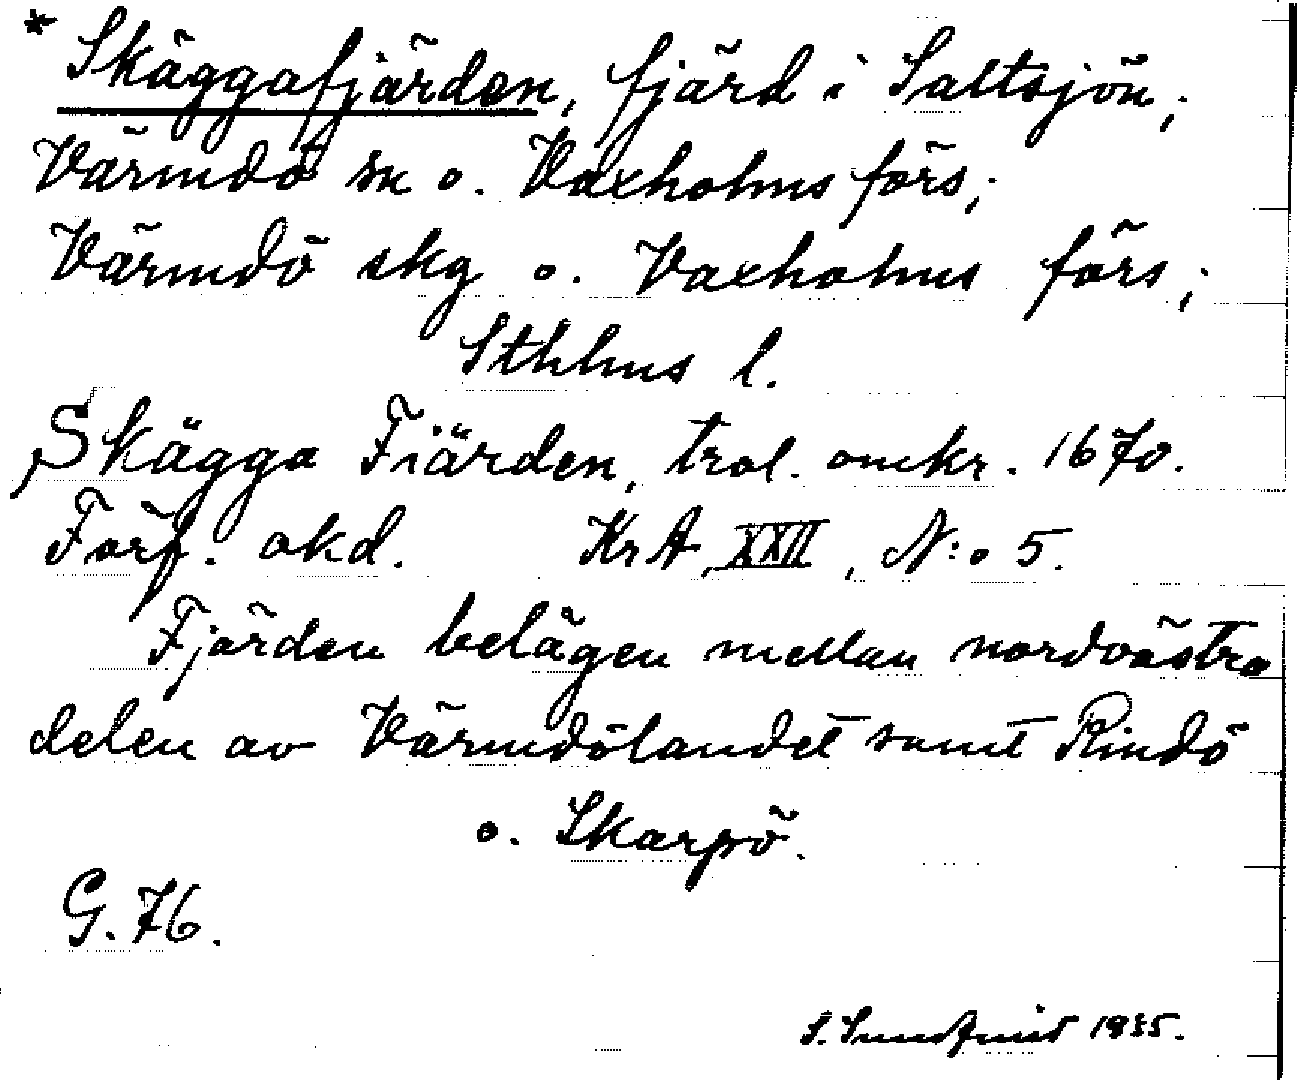 * Skäggafjärden, fjärd i Saltsjön,;
Värmdö sn o. Vaxholms förs,;
Värmdö skg o. Vaxholms förs,;
Sthlms l.
Skägga Fiärden, trol. omkr. 1670.
Förf. okd. KrA, XXII, N:o 5.
Fjärden belägen mellan nordvästra
delen av Värmdölandet samt Rindö
o. Skarpö.
G. 76.
S. Sundquist 1935.